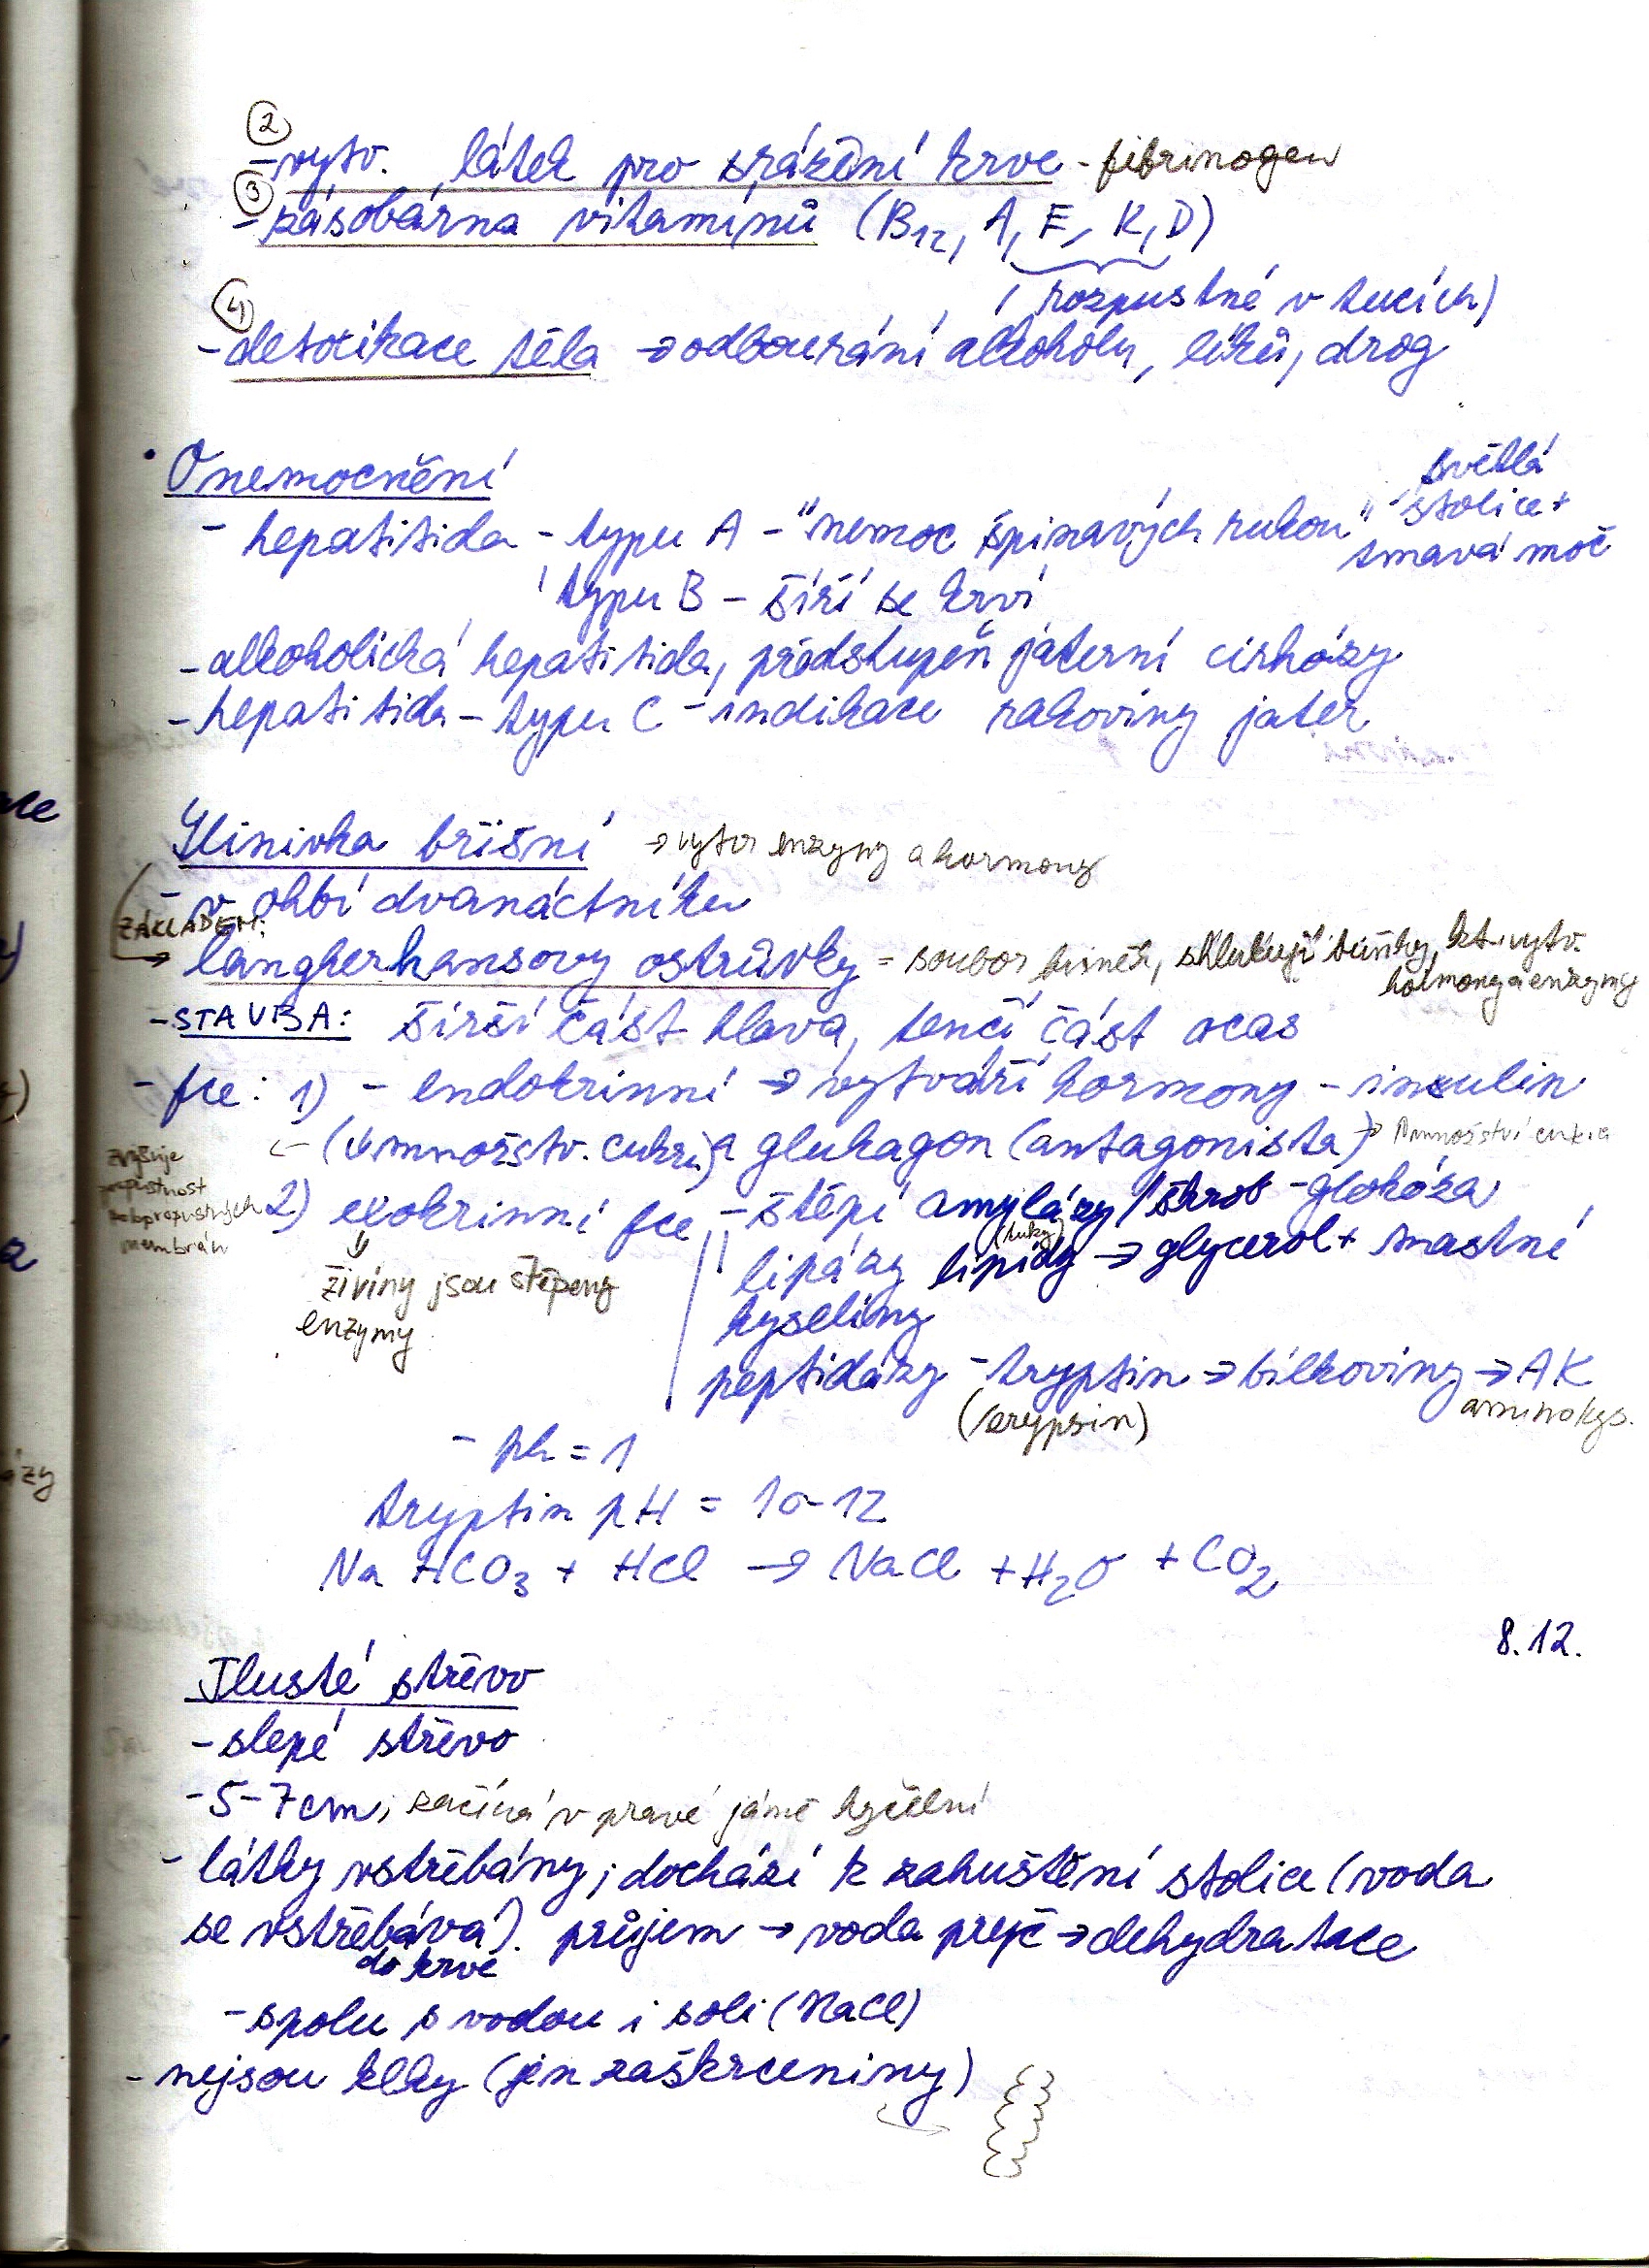 ②
- vytv. látek pro srážení krve - fibrinogen
③
- zásobárna vitamínů (B12, A, E, K, D)
(rozpustné v tucích)
④
- detoxikace těla → odbourání alkoholu, léků, drog
Onemocnění
- hepatitida - typu A - "nemoc špinavých rukou" - světlá
stolice +
tmavá moč
typu B - šíří se krví
- alkoholická hepatitida, předstupeň jaterní cirhózy
- hepatitida - typu C - indikace rakoviny jater
Slinivka břišní → vytvr enzymy a hormony
- v ohbí dvanáctníku
ZÁKLADEM:
→ langherhansovy ostrůvky = soubor buněk, shlukují buňky, kt. vytv.
hormony a enzymy
- STAVBA: širší část hlava, tenčí část ocas
- fce: 1) - endokrinní → vytváří hormony - insulin
← (↓ množstv. cukru) a glukagon (antagonista) → ↑ množství cukru
zvyšuje
propustnost
polopropustných
membrán
2) exokrinní fce - štěpí amylázy / škrob - glokóza
(tuky)
lipázy lipidy → glycerol + mastné
kyseliny
živiny jsou štěpeny
enzymy
peptidázy - tryptin → bílkoviny → AK
(erypsin)
aminokys.
- ph = 1
tryptin pH = 10-12
NaHCO3 + HCl → NaCl + H2O + CO2
8.12.
Tlusté střevo
- slepé střevo
- 5-7cm, začíná v pravé jámě kyčelní
- látky vstřebány; dochází k zahuštění stolice (voda
se vstřebává). průjem → voda pryč → dehydratace
do krve
- spolu s vodou i soli (NaCl)
- nejsou klky (jen zaškrceniny)